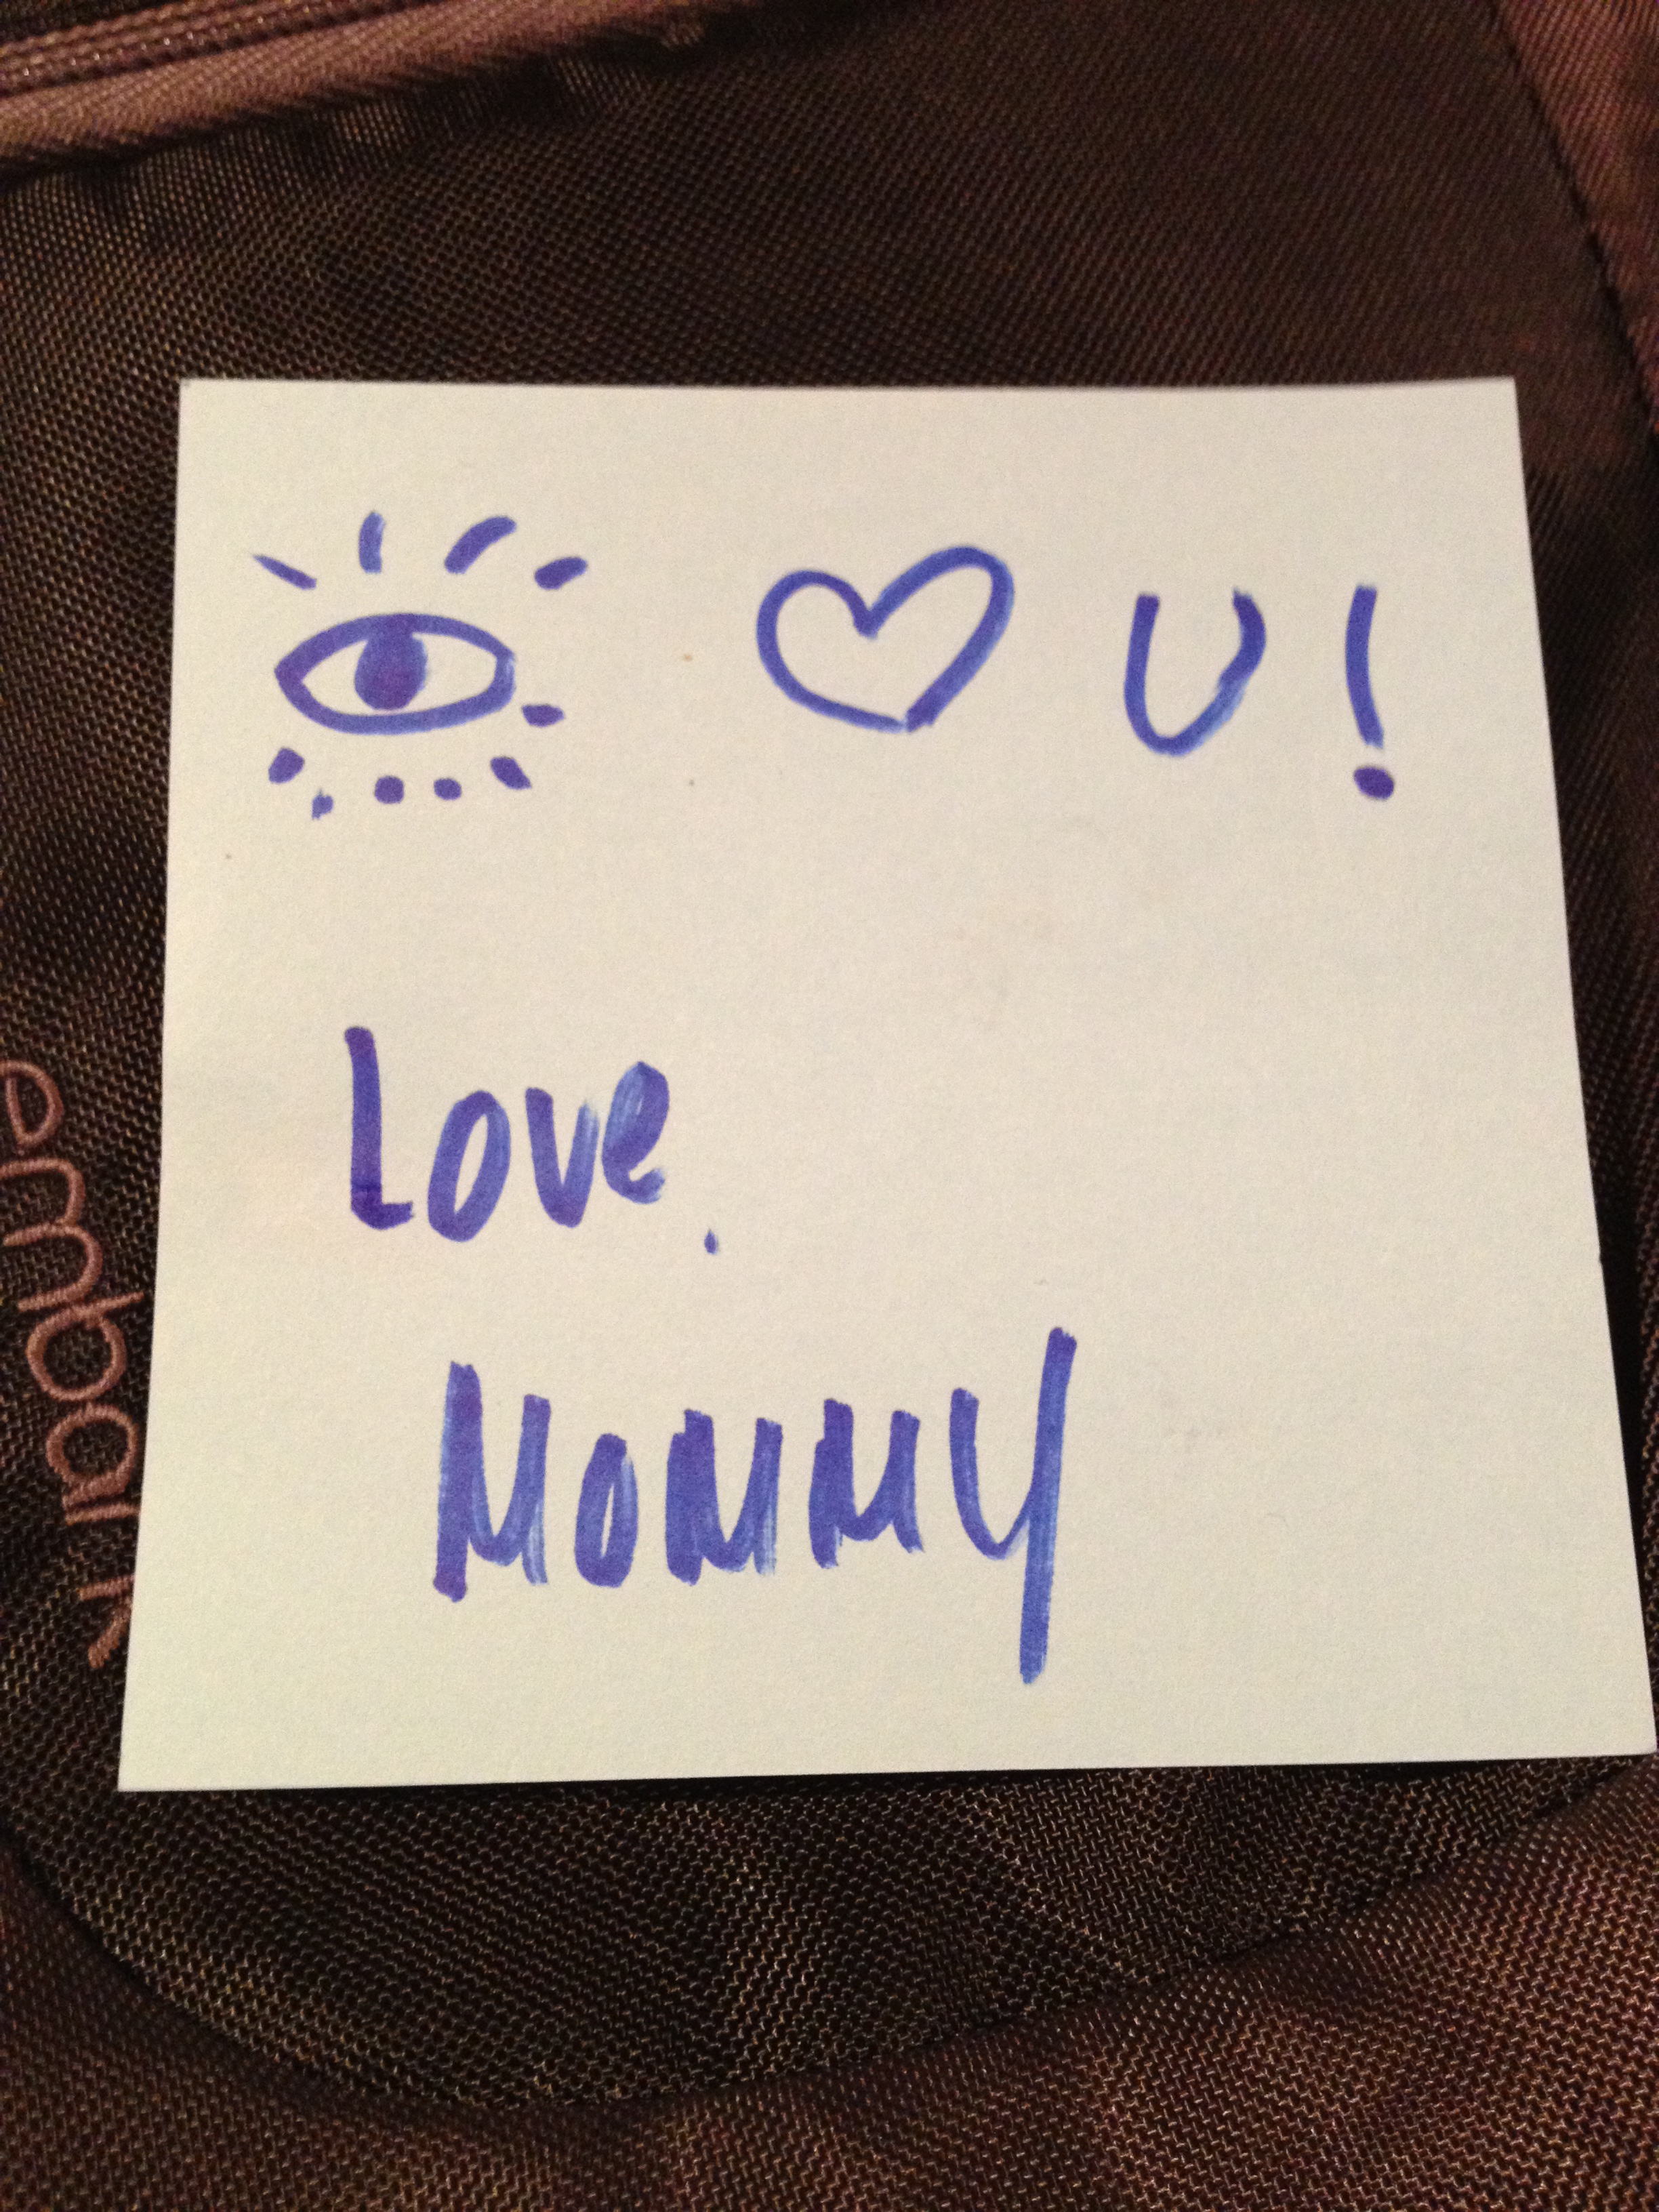 U!
Love,
Mommy
embark